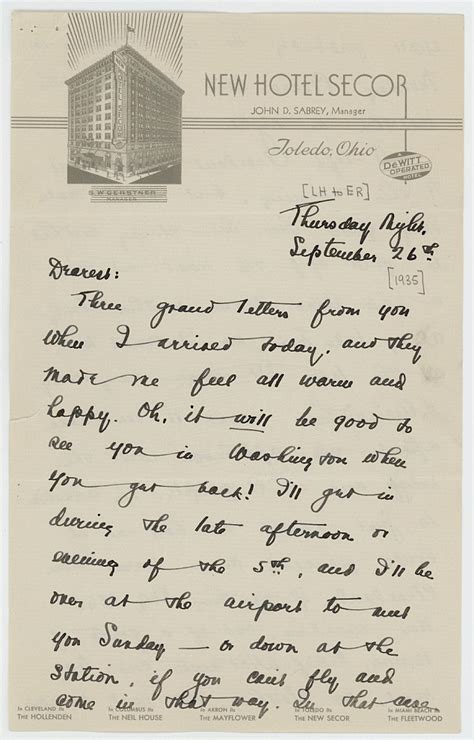 NEW HOTEL SECOR
JOHN D. SABREY, Manager
Toledo, Ohio
DEWITT
OPERATED
HOTEL
S.W. GERSTNER
MANAGER
[LH to ER]
Thursday Night.
September 26th
[1935]
Dearest:
Three grand letters from you
when I arrived today, and they
made me feel all warm and
happy. Oh, it will be good to
see you in Washington when
you get back! I'll get in
during the late afternoon or
evening of the 5th, and I'll be
over at the airport to meet
you Sunday — or down at the
station, if you can't fly and
come in that way. In that case
In CLEVELAND It's
THE HOLLENDEN
In COLUMBUS It's
THE NEIL HOUSE
In AKRON It's
THE MAYFLOWER
In TOLEDO It's
THE NEW SECOR
In MIAMI BEACH It's
THE FLEETWOOD